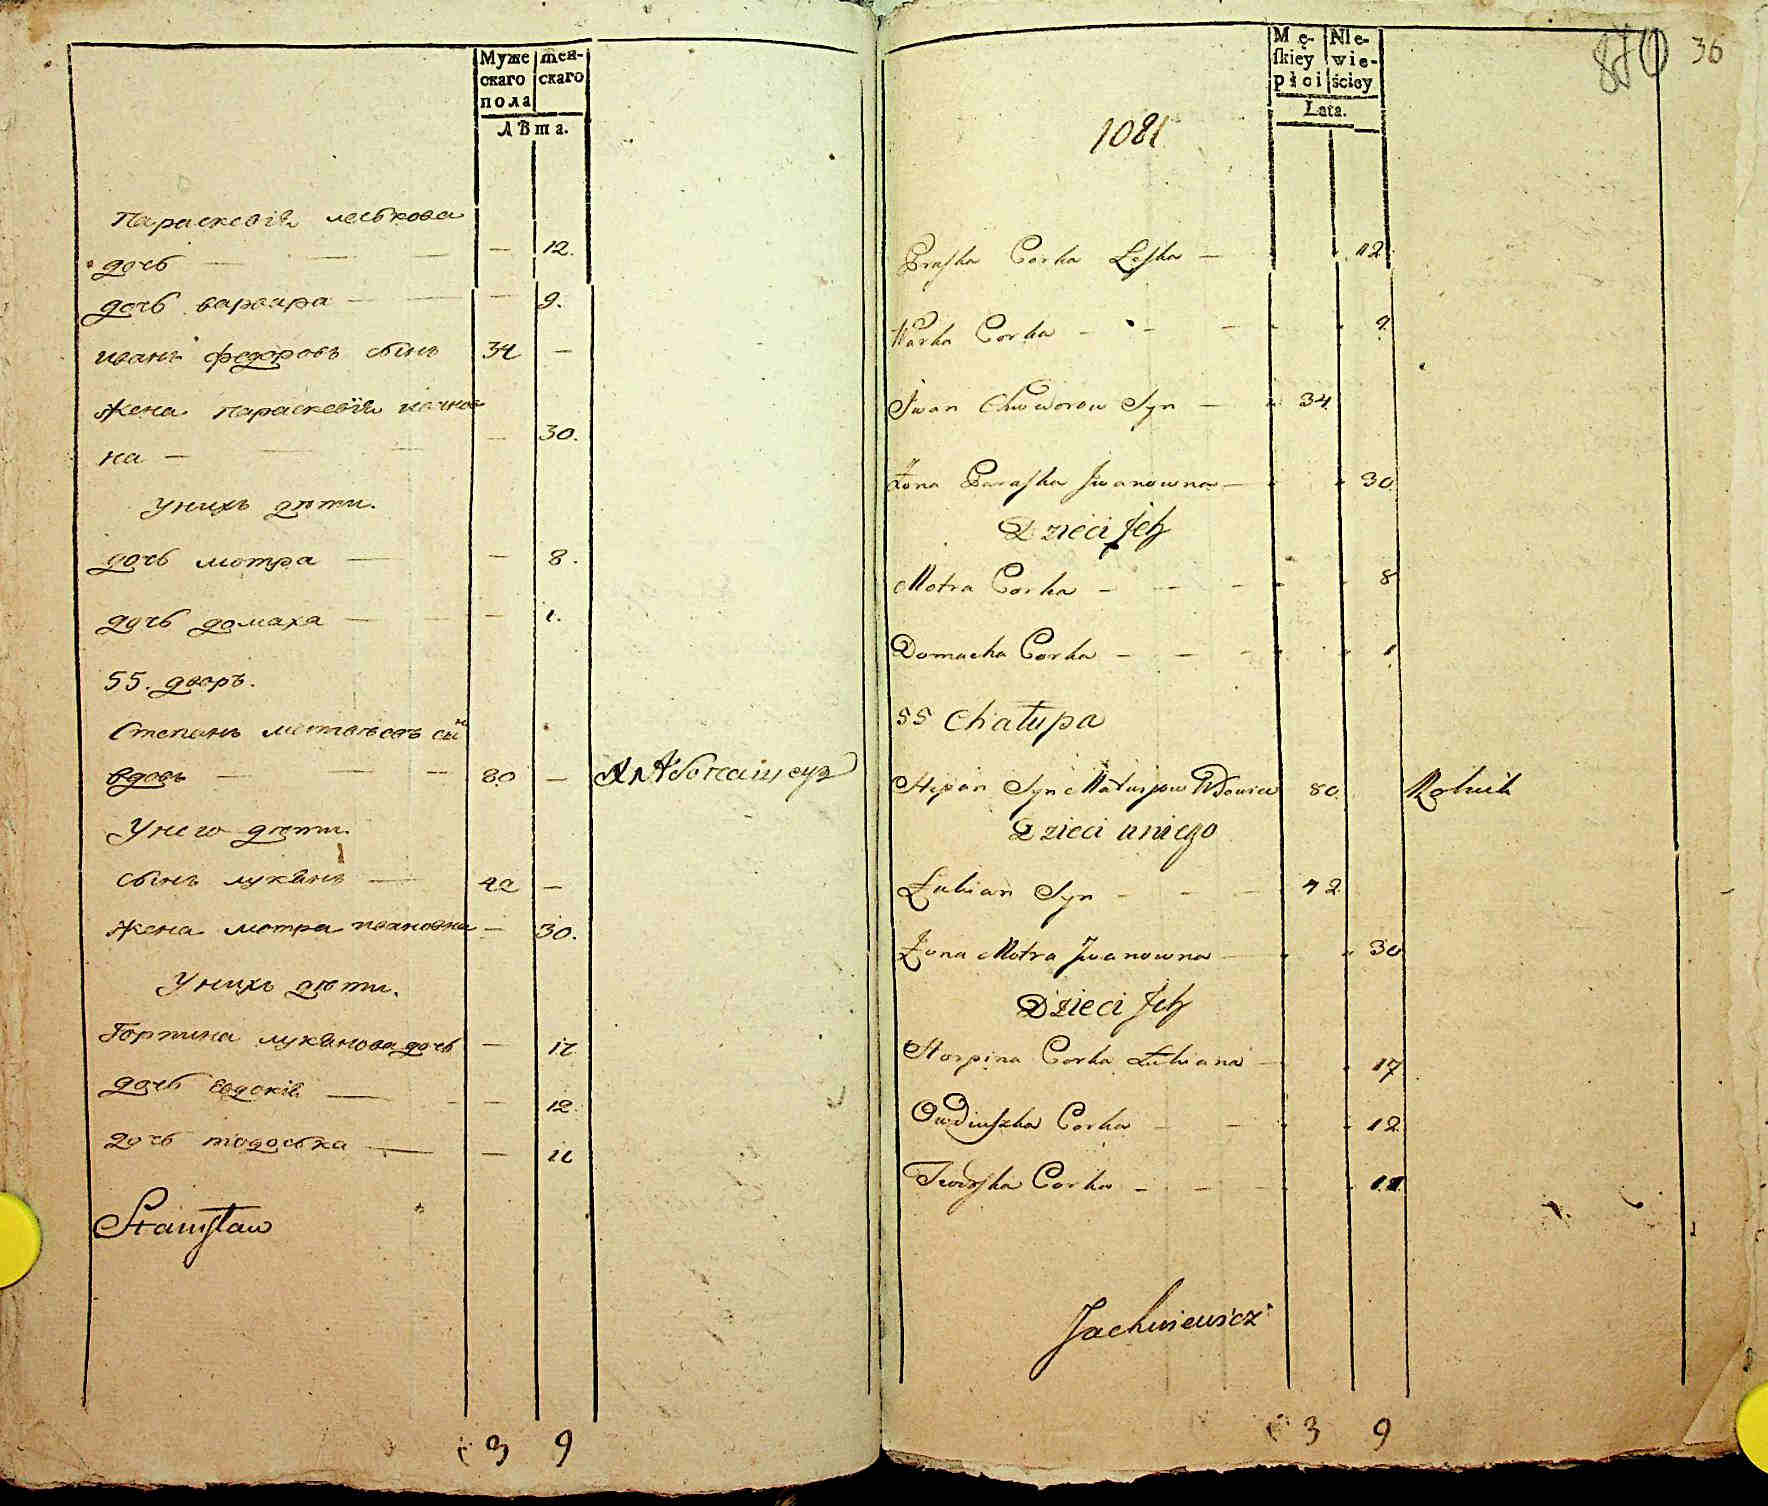 Муже
скаго
пола
жен-
скаго
лѣта.
Параскевія леськова
дочь — — — — 12.
дочь варвара — — — 9.
иванъ федоровъ сынъ 34 —
жена Параскевія иванов
на — — — — 30.
У нихъ дѣти.
дочь мотра — — 8.
дочь домаха — — — 1.
55. дворъ.
Степанъ матвѣевъ сы
вдовъ — — — 80 —
У него дѣти.
сынъ лукянъ — 42 —
жена мотра ивановна — 30.
У нихъ дѣти.
Горпина лукянова дочь — 17
дочь Евдокія — — 12.
дочь тодоська — — 11
Stanisław
3 9
870 36
Mę-
skiey
płci
Nie-
wie-
ściey
Lata.
1081
Praska Corka Leska — 12.
Warka Corka — — — 9.
Jwan Chwedorow Syn — 34
Żona Paraska Jwanowna — 30
Dzieci Jch
Motra Corka — — — 8
Domacha Corka — — — 1
55 Chałupa
Stepan Syn Matwijow Wdowiec 80 Rolnik
Dzieci u niego
Łukian Syn — — — 42
Żona Motra Jwanowna — 30
Dzieci Jch
Horpina Corka Łukiana — 17
Owdiuszka Corka — — 12
Teodoska Corka — — — 11
Jachniewicz
3 9